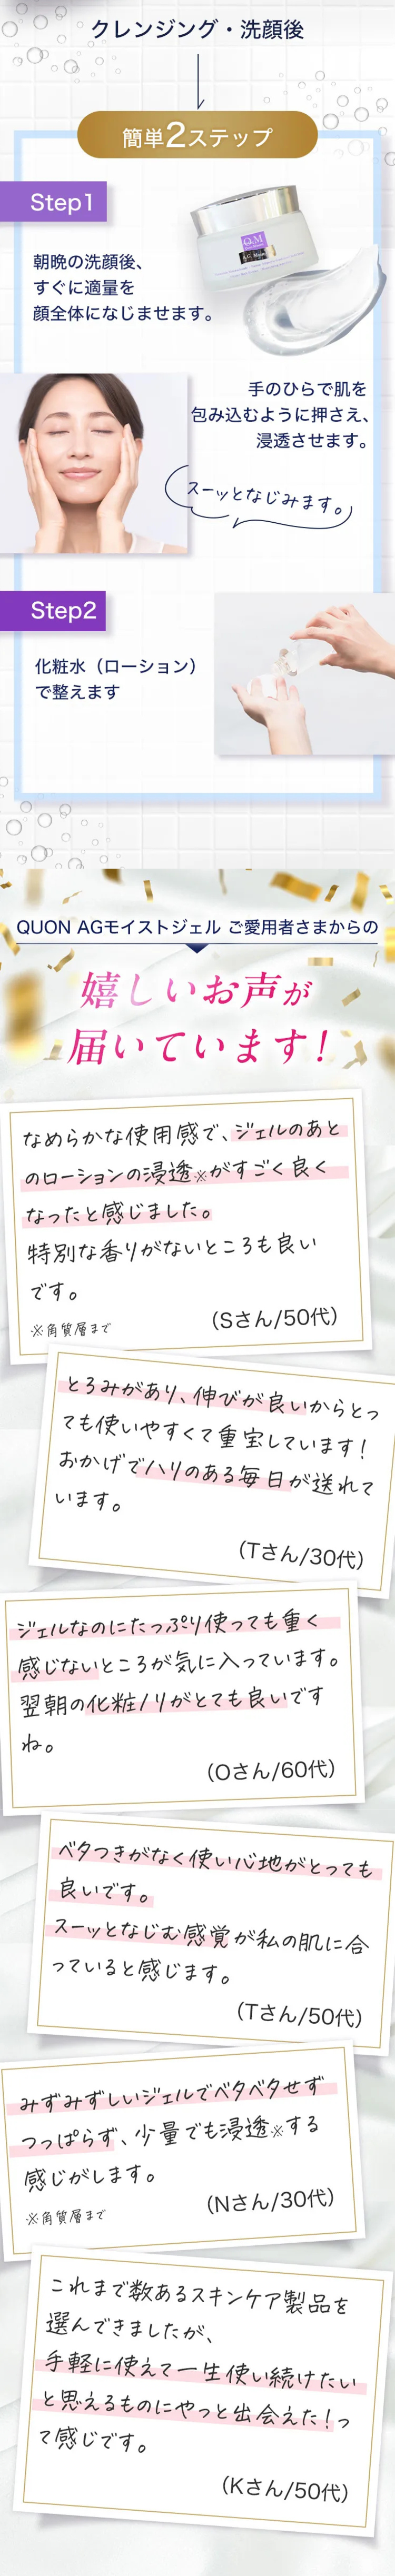 クレンジング・洗顔後
簡単2ステップ
Step1
Q.M
AG Moist
朝晩の洗顔後、
すぐに適量を
顔全体になじませます。
手のひらで肌を
包み込むように押さえ、
浸透させます。
スーッとなじみます。
Step2
化粧水（ローション）
で整えます
QUON AGモイストジェル ご愛用者さまからの
嬉しいお声が
届いています！
なめらかな使用感で、ジェルのあと
のローションの浸透※がすごく良く
なったと感じました。
特別な香りがないところも良い
です。
※角質層まで
（Sさん/50代）
とろみがあり、伸びが良いからとっ
ても使いやすくて重宝しています！
おかげでハリのある毎日が送れて
います。
（Tさん/30代）
ジェルなのにたっぷり使っても重く
感じないところが気に入っています。
翌朝の化粧ノリがとても良いです
ね。
（Oさん/60代）
ベタつきがなく使い心地がとっても
良いです。
スーッとなじむ感覚が私の肌に合
っていると感じます。
（Tさん/50代）
みずみずしいジェルでベタベタせず
つっぱらず、少量でも浸透※する
感じがします。
※角質層まで
（Nさん/30代）
これまで数あるスキンケア製品を
選んできましたが、
手軽に使えて一生使い続けたい
と思えるものにやっと出会えた！っ
て感じです。
（Kさん/50代）